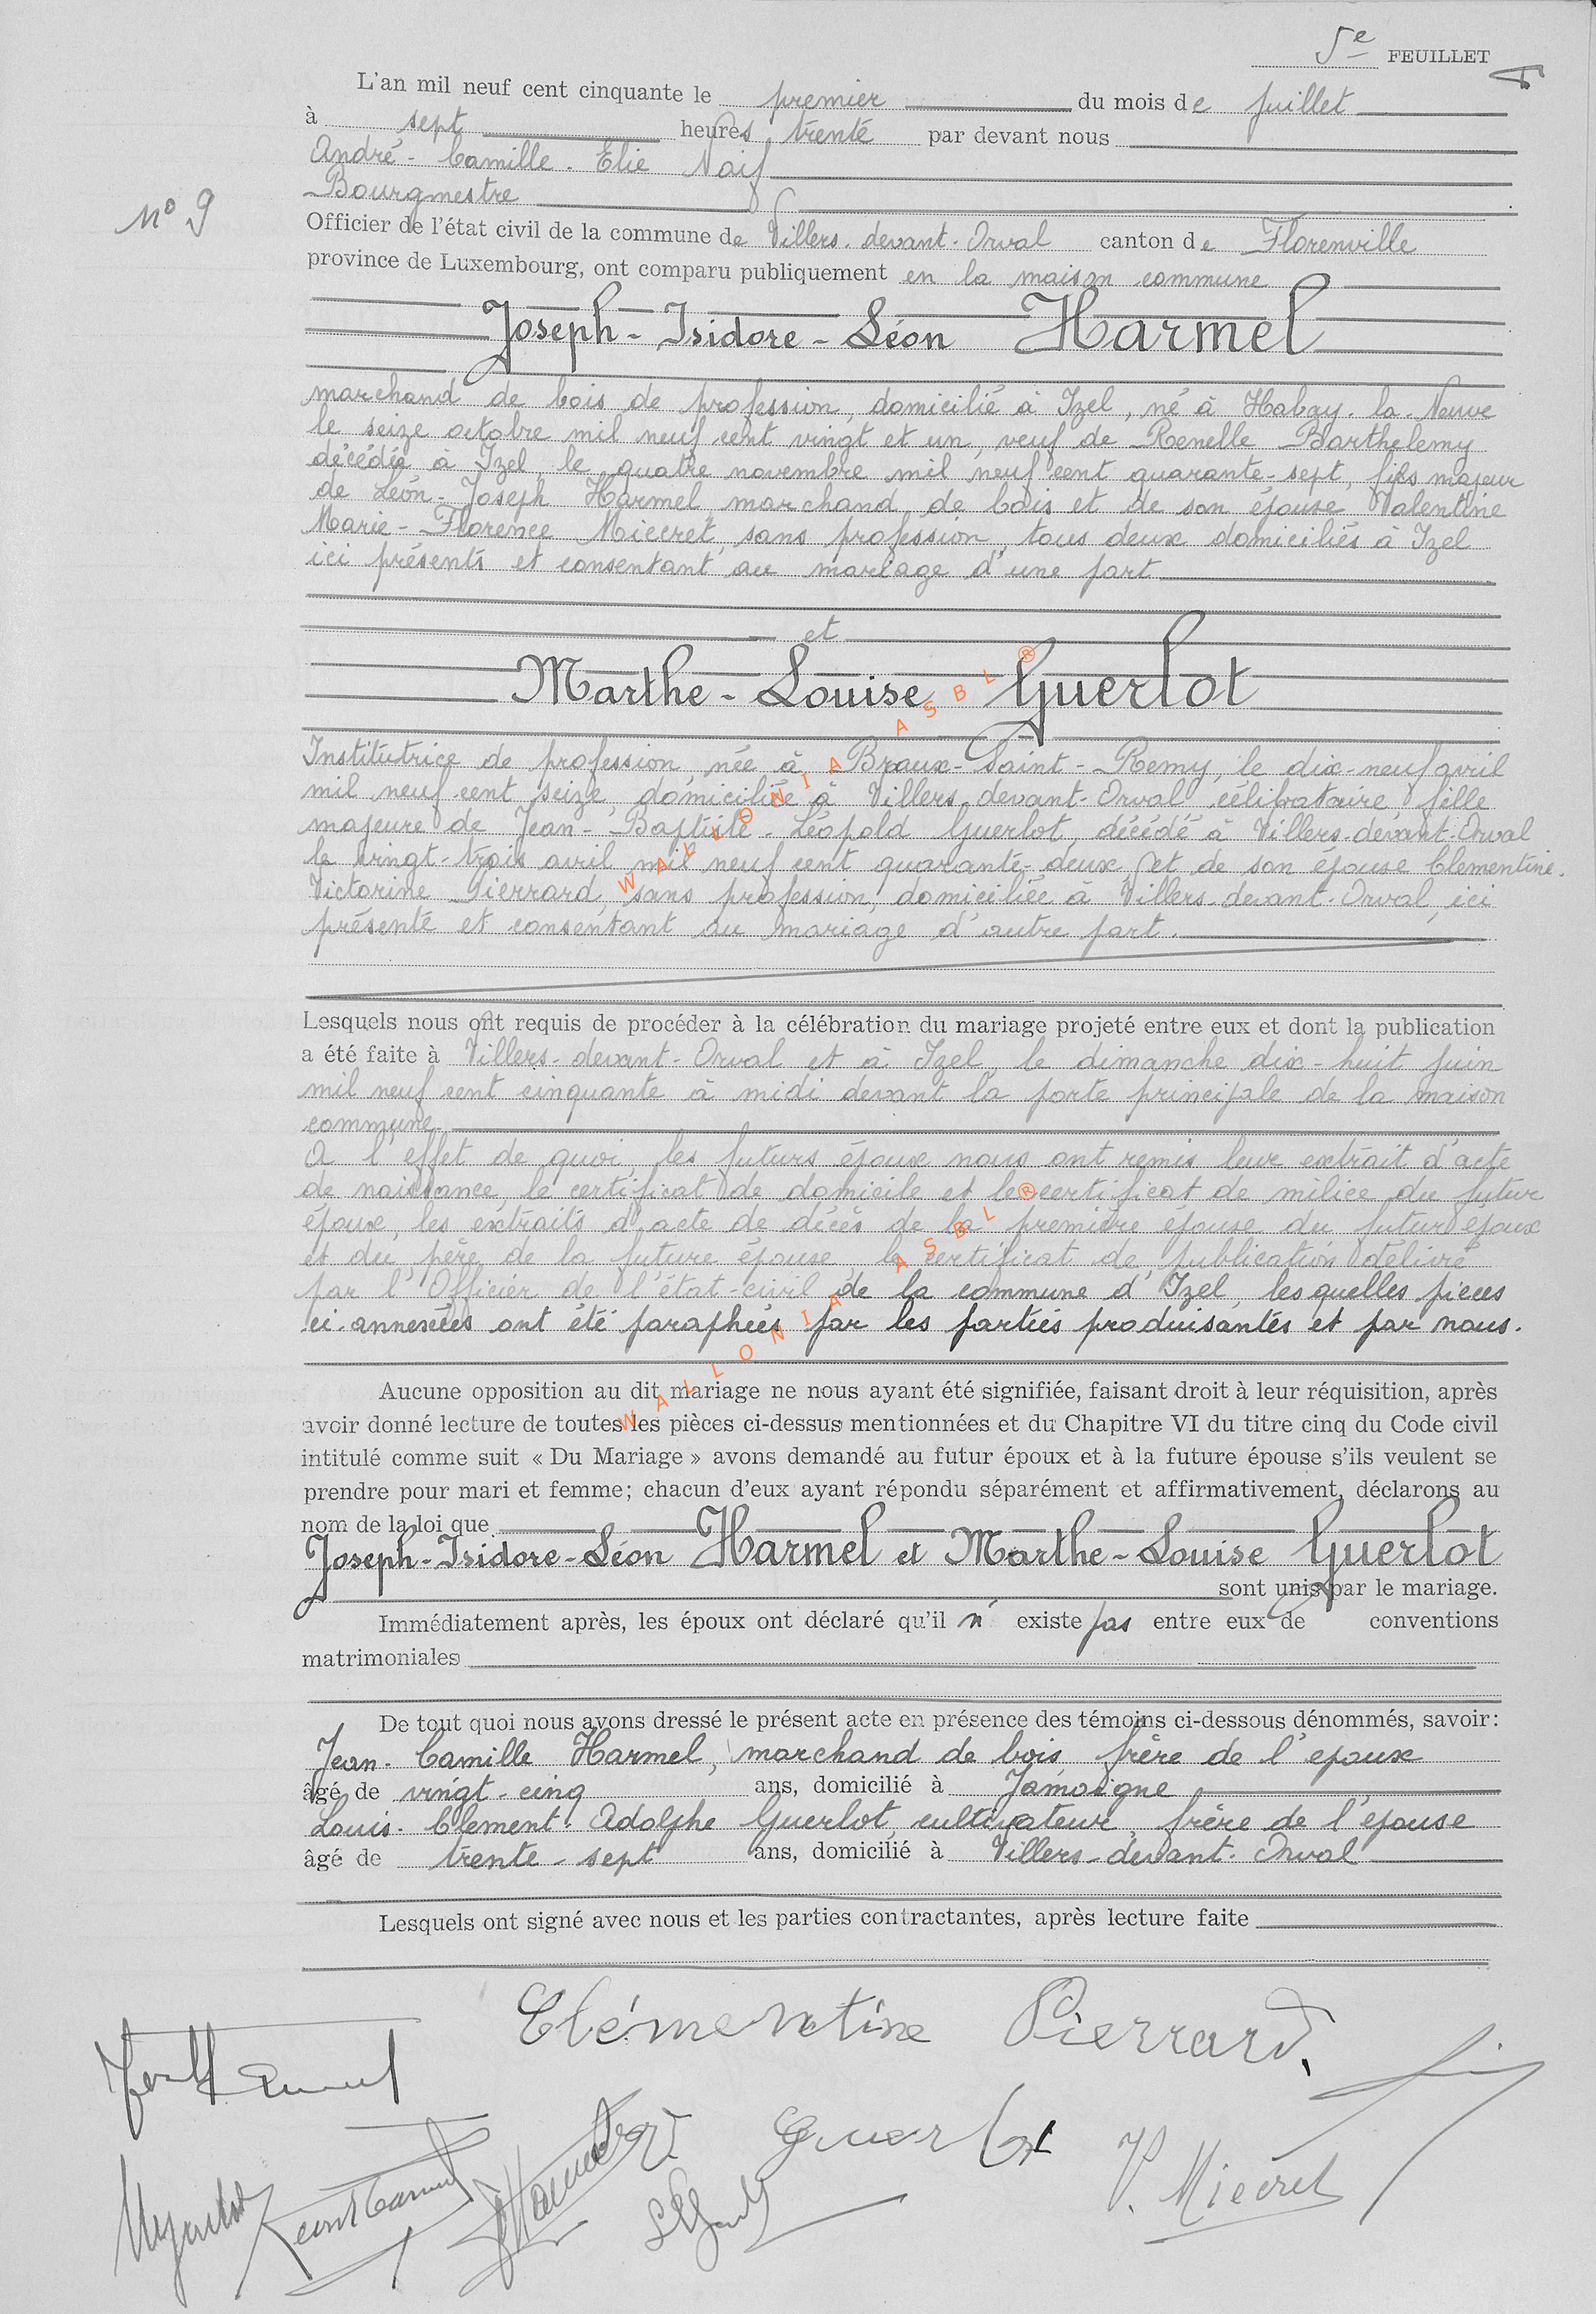 5e FEUILLET
L'an mil neuf cent cinquante le premier du mois de juillet
à sept heures trente par devant nous
André - Camille - Elie Naif
Bourgmestre
N° 9
Officier de l'état civil de la commune de Villers-devant-Orval canton de Florenville
province de Luxembourg, ont comparu publiquement en la maison commune
Joseph - Isidore - Léon Harmel
marchand de bois de profession, domicilié à Izel, né à Habay-la-Neuve
le seize octobre mil neuf cent vingt et un, veuf de Renelle Barthelemy
décédée à Izel, le quatre novembre mil neuf cent quarante-sept, fils majeur
de Léon-Joseph Harmel, marchand de bois et de son épouse Valentine
Marie-Florence Miécret, sans profession, tous deux domiciliés à Izel
ici présents et consentant au mariage d'une part
et
Marthe - Louise Guerlot
Institutrice de profession, née à Braux-Saint-Remy, le dix-neuf avril
mil neuf cent seize, domiciliée à Villers-devant-Orval célibataire, fille
majeure de Jean-Baptiste-Léopold Guerlot, décédé à Villers-devant-Orval
le vingt-trois avril mil neuf cent quarante-deux, et de son épouse Clementine
Victorine Pierrard, sans profession, domiciliée à Villers-devant-Orval, ici
présente et consentant au mariage d'autre part.
Lesquels nous ont requis de procéder à la célébration du mariage projeté entre eux et dont la publication
a été faite à Villers-devant-Orval et à Izel, le dimanche dix-huit juin
mil neuf cent cinquante à midi devant la porte principale de la maison
commune
A l'effet de quoi, les futurs époux nous ont remis leur extrait d'acte
de naissance, le certificat de domicile et le certificat de milice du futur
époux, les extraits d'acte de décès de la première épouse du futur époux
et du père de la future épouse, le certificat de publication délivré
par l'Officier de l'état-civil de la commune d'Izel, lesquelles pièces
ci-annexées ont été paraphées par les parties produisantes et par nous.
Aucune opposition au dit mariage ne nous ayant été signifiée, faisant droit à leur réquisition, après
avoir donné lecture de toutes les pièces ci-dessus mentionnées et du Chapitre VI du titre cinq du Code civil
intitulé comme suit « Du Mariage » avons demandé au futur époux et à la future épouse s'ils veulent se
prendre pour mari et femme; chacun d'eux ayant répondu séparément et affirmativement, déclarons au
nom de la loi que
Joseph-Isidore-Léon Harmel et Marthe-Louise Guerlot
sont unis par le mariage.
Immédiatement après, les époux ont déclaré qu'il n' existe pas entre eux de conventions
matrimoniales
De tout quoi nous avons dressé le présent acte en présence des témoins ci-dessous dénommés, savoir:
Jean-Camille Harmel, marchand de bois frère de l'epoux
âgé de vingt-cinq ans, domicilié à Jamoigne
Louis-Clement-Adolphe Guerlot, cultivateur, frère de l'epouse
âgé de trente-sept ans, domicilié à Villers-devant-Orval
Lesquels ont signé avec nous et les parties contractantes, après lecture faite
Clémentine Pierrard.
Guerlot
V. Miécret
WALLONIA ASBL ®
WALLONIA ASBL ®